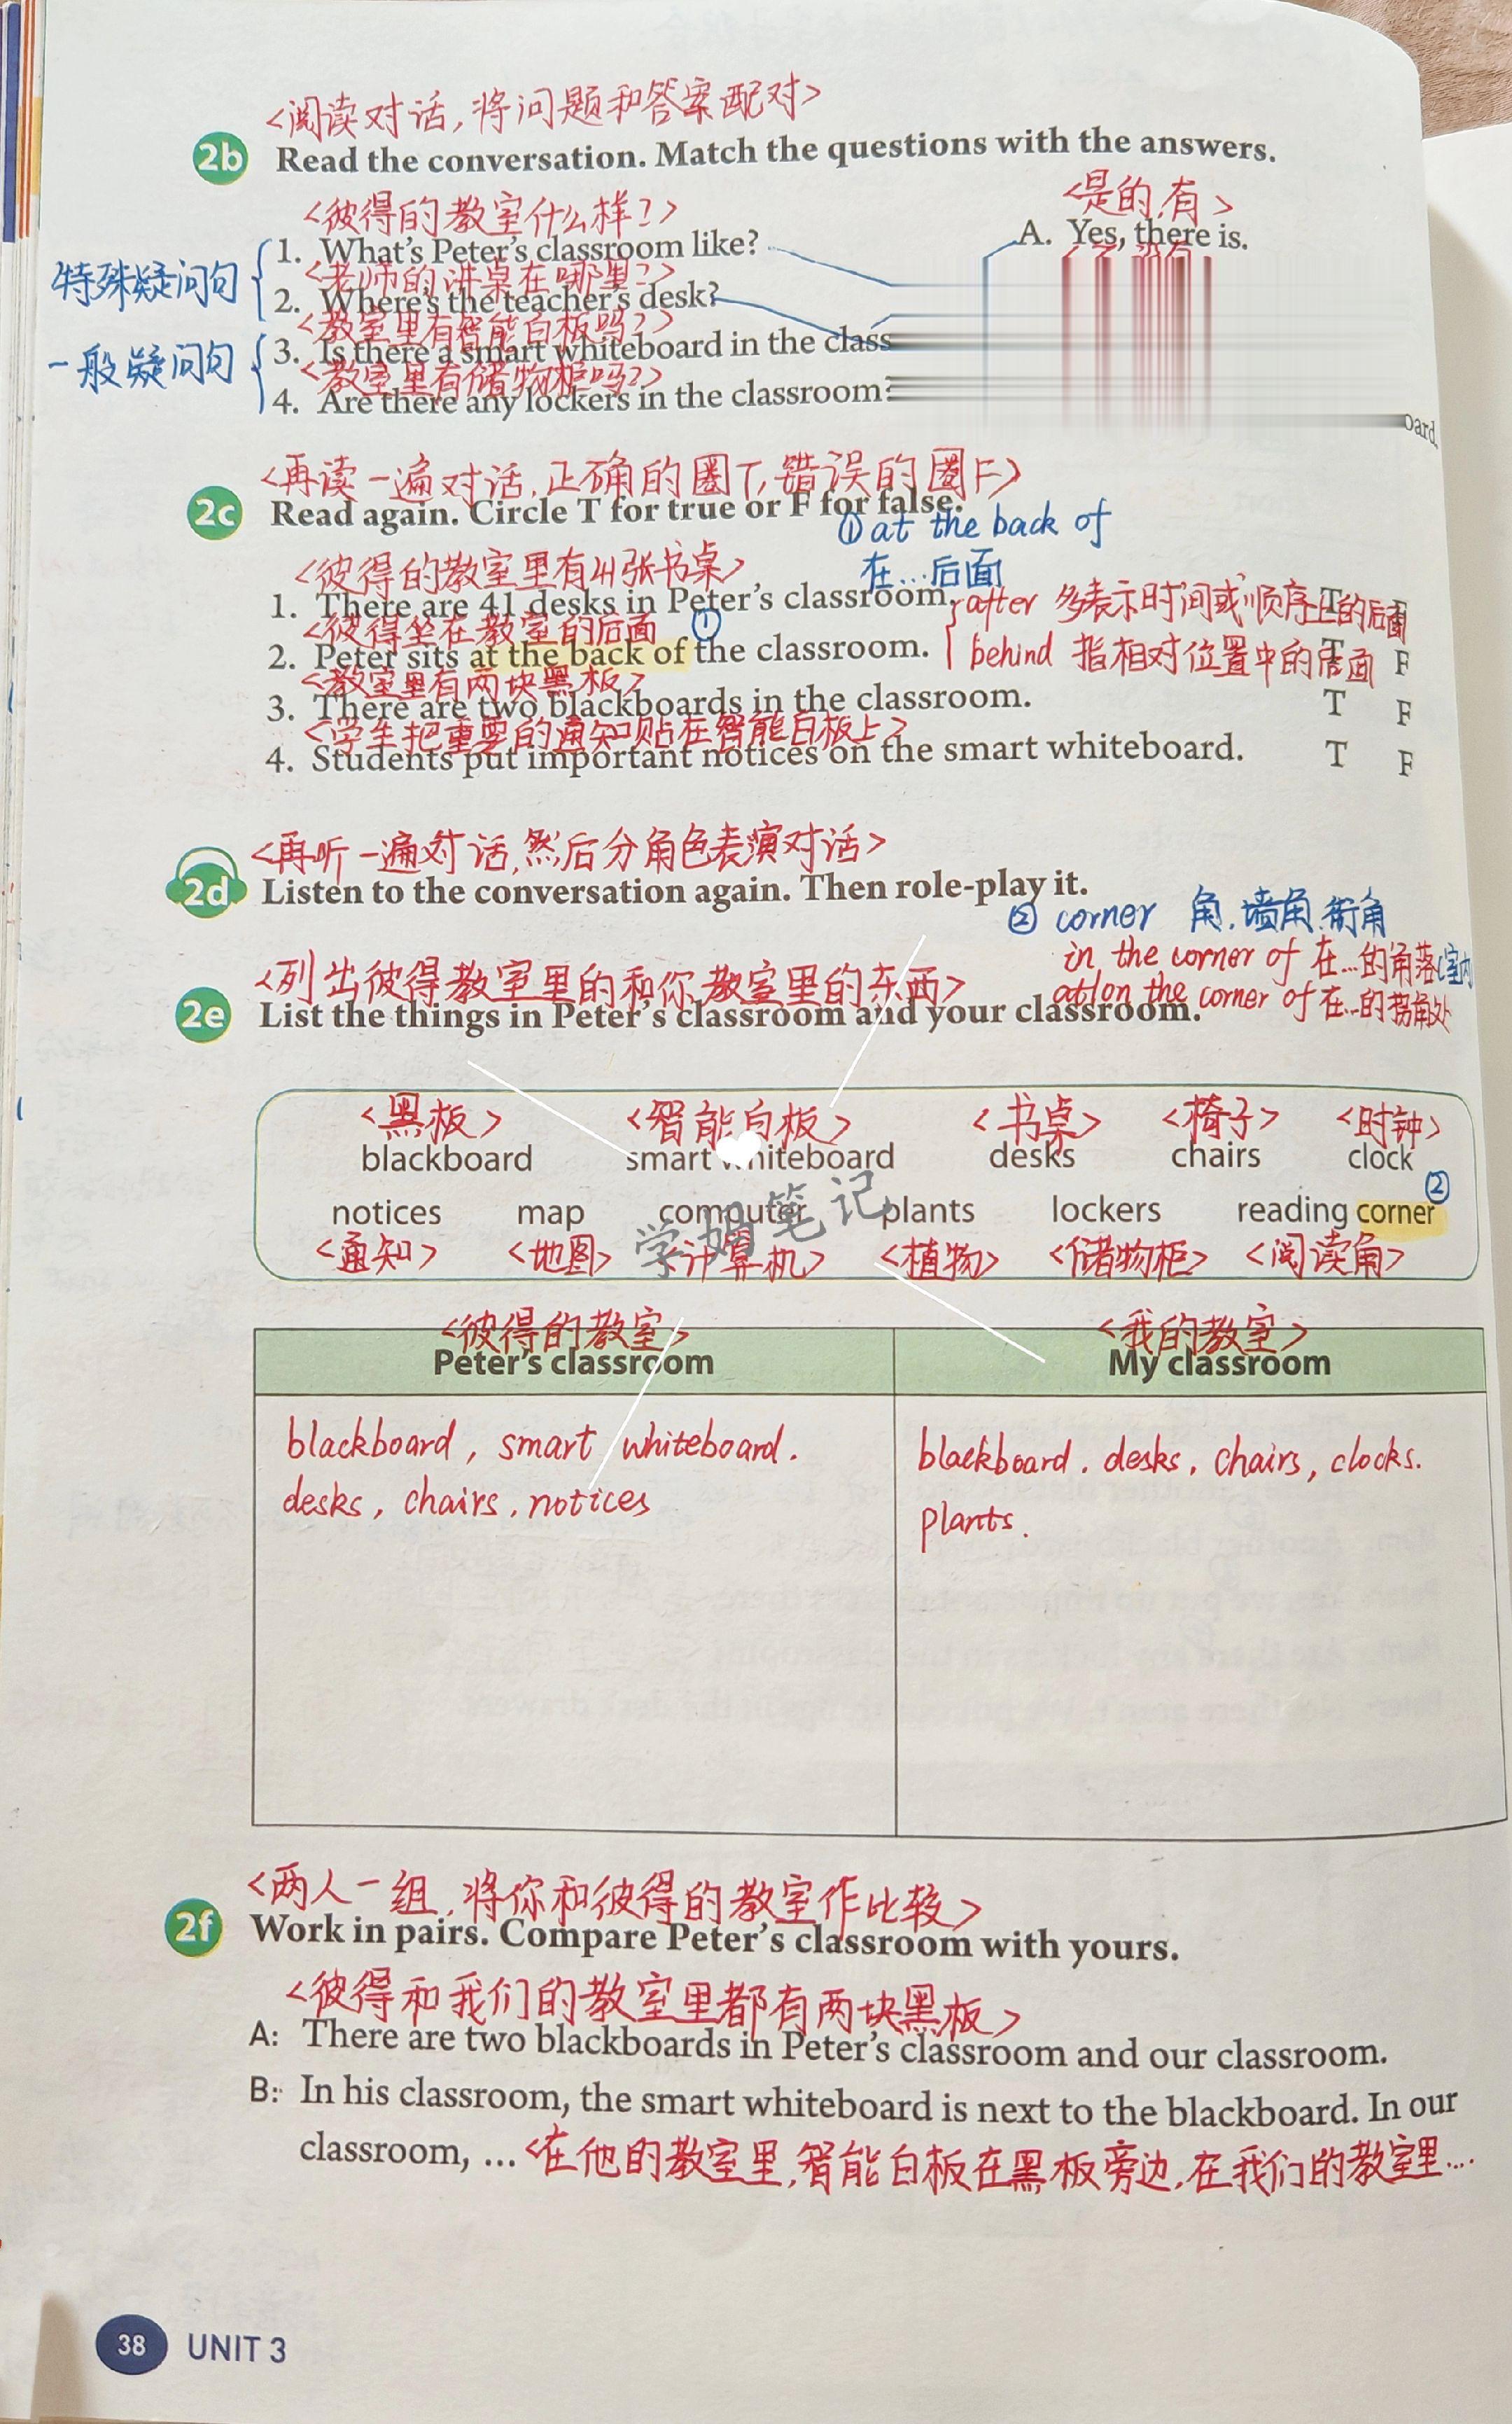 <阅读对话,将问题和答案配对>
2b Read the conversation. Match the questions with the answers.
<彼得的教室什么样?>
<是的,有>
1. What's Peter's classroom like?
A. Yes, there is.
特殊疑问句
<老师的讲桌在哪里?>
2. Where's the teacher's desk?
<教室里有智能白板吗?>
3. Is there a smart whiteboard in the class
一般疑问句
<教室里有储物柜吗?>
4. Are there any lockers in the classroom?
oard.
<再读一遍对话,正确的圈T,错误的圈F>
2c Read again. Circle T for true or F for false.
①at the back of
在...后面
<彼得的教室里有41张书桌>
1. There are 41 desks in Peter's classroom. T F
after 多表示时间或顺序上的后面
<彼得坐在教室的后面 ①
2. Peter sits at the back of the classroom. T F
behind 指相对位置中的后面
<教室里有两块黑板>
3. There are two blackboards in the classroom. T F
<学生把重要的通知贴在智能白板上>
4. Students put important notices on the smart whiteboard. T F
<再听一遍对话,然后分角色表演对话>
2d Listen to the conversation again. Then role-play it.
② corner 角,墙角,街角
in the corner of 在...的角落(室内
at/on the corner of 在...的拐角处
<列出彼得教室里的和你教室里的东西>
2e List the things in Peter's classroom and your classroom.
<黑板> <智能白板> <书桌> <椅子> <时钟>
blackboard smart whiteboard desks chairs clock
②
notices map computer plants lockers reading corner
<通知> <地图> <计算机> <植物> <储物柜> <阅读角>
学姐笔记
<彼得的教室> <我的教室>
Peter's classroom My classroom
blackboard, smart whiteboard.
desks, chairs, notices
blackboard. desks, chairs, clocks.
plants.
<两人一组,将你和彼得的教室作比较>
2f Work in pairs. Compare Peter's classroom with yours.
<彼得和我们的教室里都有两块黑板>
A: There are two blackboards in Peter's classroom and our classroom.
B: In his classroom, the smart whiteboard is next to the blackboard. In our
classroom, ... <在他的教室里,智能白板在黑板旁边,在我们的教室里...
38 UNIT 3